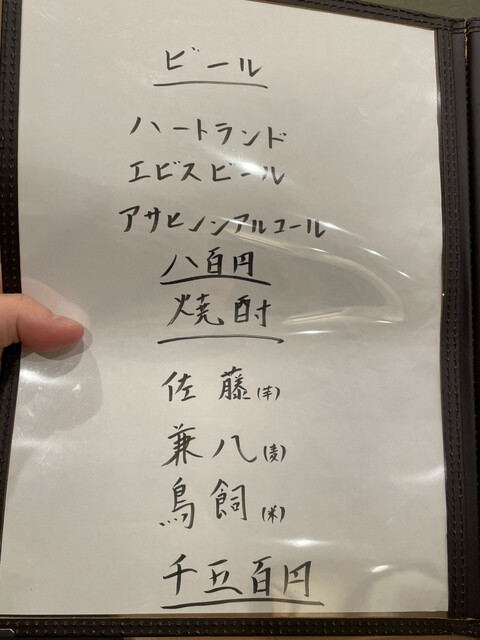 ビール
ハートランド
エビスビール
アサヒノンアルコール
八百円
焼酎
佐藤(芋)
兼八(麦)
鳥飼(米)
千五百円